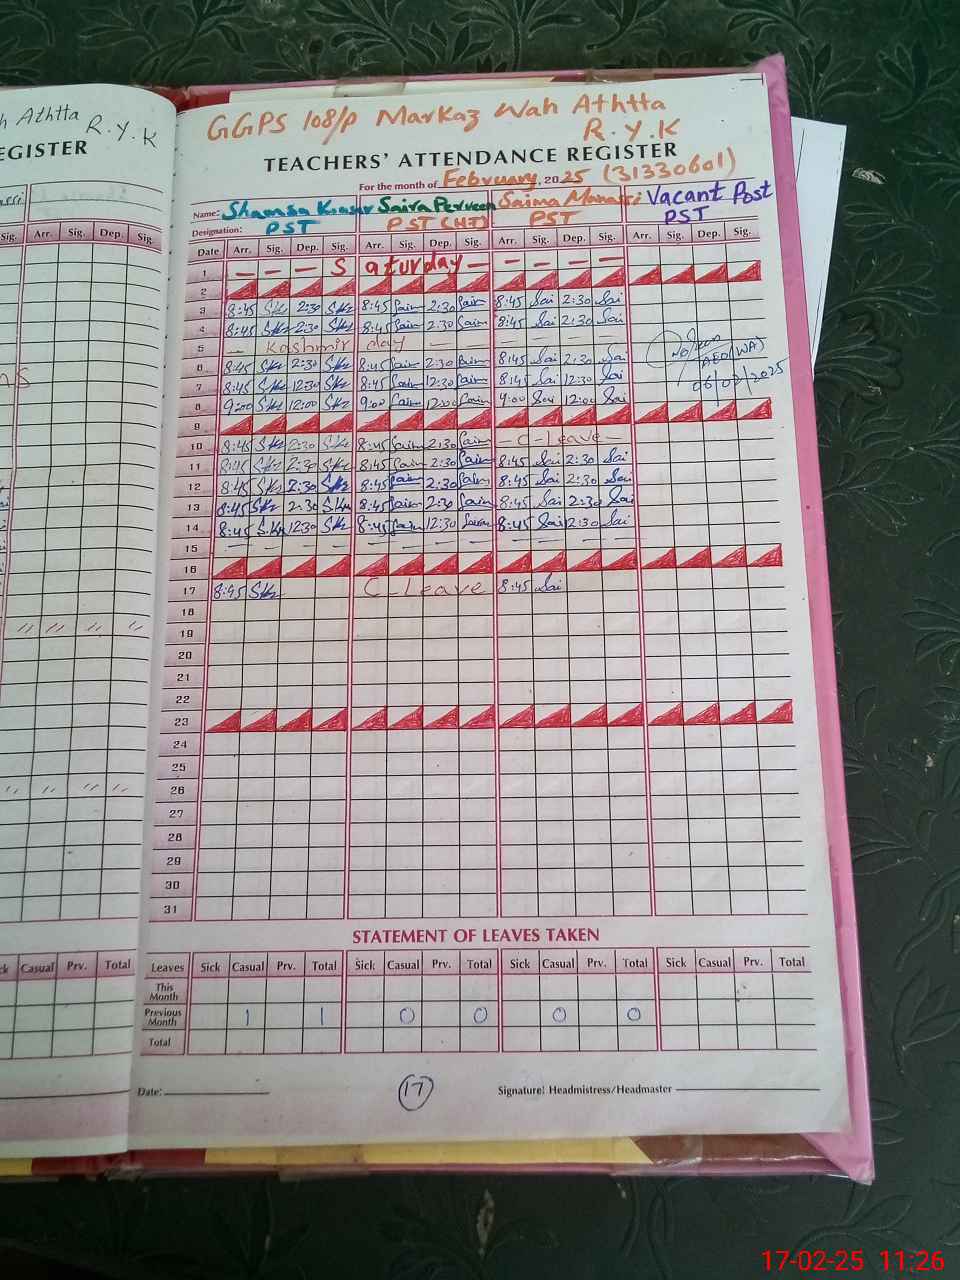 h Athtta
R.Y.K
EGISTER
Sig. Arr. Sig. Dep. Sig.
ck Casual Prv. Total
GGPS 108/P Markaz Wah Athtta
R.Y.K
TEACHERS' ATTENDANCE REGISTER
For the month of February, 2025 (31330601)
Name: Shamsa Kausar Saira Perveen Saima Vacant Post
Designation: PST PST (H.T) PST PST
Date Arr. Sig. Dep. Sig. Arr. Sig. Dep. Sig. Arr. Sig. Dep. Sig. Arr. Sig. Dep. Sig.
1 — — — Saturday — — — — —
2
3 8:45 Skz 2:30 Skz 8:45 Sair 2:30 Sair 8:45 Sai 2:30 Sai
4 8:45 Skz 2:30 Skz 8:45 Sair 2:30 Sair 8:45 Sai 2:30 Sai
5 — Kashmir day — — — — — —
6 8:45 Skz 2:30 Skz 8:45 Sair 2:30 Sair 8:45 Sai 2:30 Sai
7 8:45 Skz 12:30 Skz 8:45 Sair 12:30 Sair 8:45 Sai 12:30 Sai
AEO(WA)
06/02/2025
8 9:00 Skz 12:00 Skz 9:00 Sair 12:00 Sair 9:00 Sai 12:00 Sai
9
10 8:45 Skz 2:30 Skz 8:45 Sair 2:30 Sair — C-Leave —
11 8:45 Skz 2:30 Skz 8:45 Sair 2:30 Sair 8:45 Sai 2:30 Sai
12 8:45 Skz 2:30 Skz 8:45 Sair 2:30 Sair 8:45 Sai 2:30 Sai
13 8:45 Skz 2:30 Skz 8:45 Sair 2:30 Sair 8:45 Sai 2:30 Sai
14 8:45 Skz 12:30 Skz 8:45 Sair 12:30 Sair 8:45 Sai 2:30 Sai
15 — — — — — — — — — — — —
16
17 8:45 Skz C-Leave 8:45 Sai
18
19
20
21
22
23
24
25
26
27
28
29
30
31
STATEMENT OF LEAVES TAKEN
Leaves Sick Casual Prv. Total Sick Casual Prv. Total Sick Casual Prv. Total Sick Casual Prv. Total
This
Month
Previous
Month 1 1 0 0 0 0
Total
Date: Signature: Headmistress/Headmaster
17
17-02-25 11:26